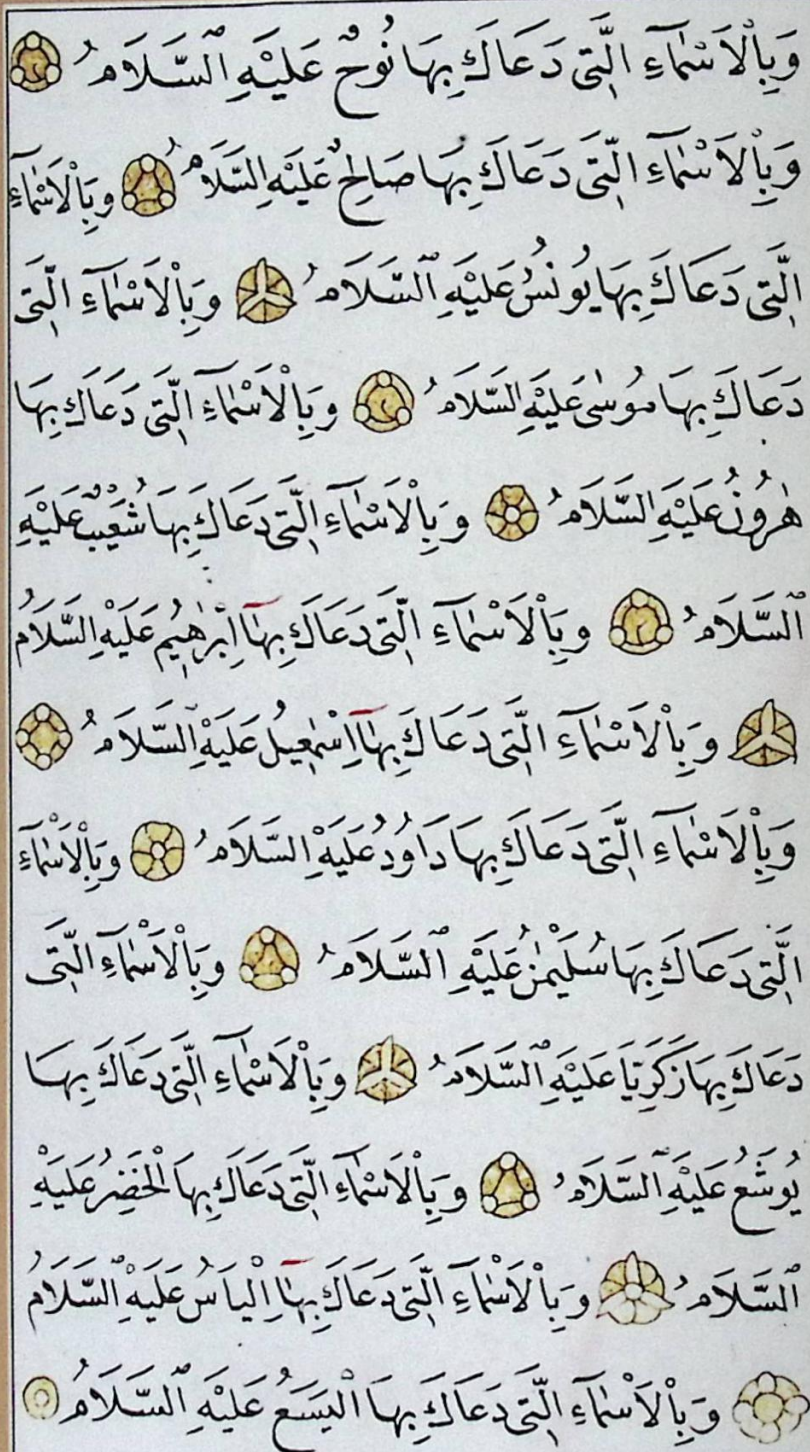 وَبِالْاَسْمَٓاءِ الَّتِى دَعَاكَ بِهَا نُوحٌ عَلَيْهِ السَّلَامُ
وَبِالْاَسْمَٓاءِ الَّتِى دَعَاكَ بِهَا صَالِحٌ عَلَيْهِ السَّلَامُ وَبِالْاَسْمَٓاءِ
الَّتِى دَعَاكَ بِهَا يُونُسُ عَلَيْهِ السَّلَامُ وَبِالْاَسْمَٓاءِ الَّتِى
دَعَاكَ بِهَا مُوسٰى عَلَيْهِ السَّلَامُ وَبِالْاَسْمَٓاءِ الَّتِى دَعَاكَ بِهَا
هٰرُونُ عَلَيْهِ السَّلَامُ وَبِالْاَسْمَٓاءِ الَّتِى دَعَاكَ بِهَا شُعَيْبٌ عَلَيْهِ
السَّلَامُ وَبِالْاَسْمَٓاءِ الَّتِى دَعَاكَ بِهَٓا اِبْرٰهِيمُ عَلَيْهِ السَّلَامُ
وَبِالْاَسْمَٓاءِ الَّتِى دَعَاكَ بِهَٓا اِسْمٰعِيلُ عَلَيْهِ السَّلَامُ
وَبِالْاَسْمَٓاءِ الَّتِى دَعَاكَ بِهَا دَاوُدُ عَلَيْهِ السَّلَامُ وَبِالْاَسْمَٓاءِ
الَّتِى دَعَاكَ بِهَا سُلَيْمٰنُ عَلَيْهِ السَّلَامُ وَبِالْاَسْمَٓاءِ الَّتِى
دَعَاكَ بِهَا زَكَرِيَّا عَلَيْهِ السَّلَامُ وَبِالْاَسْمَٓاءِ الَّتِى دَعَاكَ بِهَا
يُوشَعُ عَلَيْهِ السَّلَامُ وَبِالْاَسْمَٓاءِ الَّتِى دَعَاكَ بِهَا الْخَضِرُ عَلَيْهِ
السَّلَامُ وَبِالْاَسْمَٓاءِ الَّتِى دَعَاكَ بِهَٓا اِلْيَاسُ عَلَيْهِ السَّلَامُ
وَبِالْاَسْمَٓاءِ الَّتِى دَعَاكَ بِهَا الْيَسَعُ عَلَيْهِ السَّلَامُ